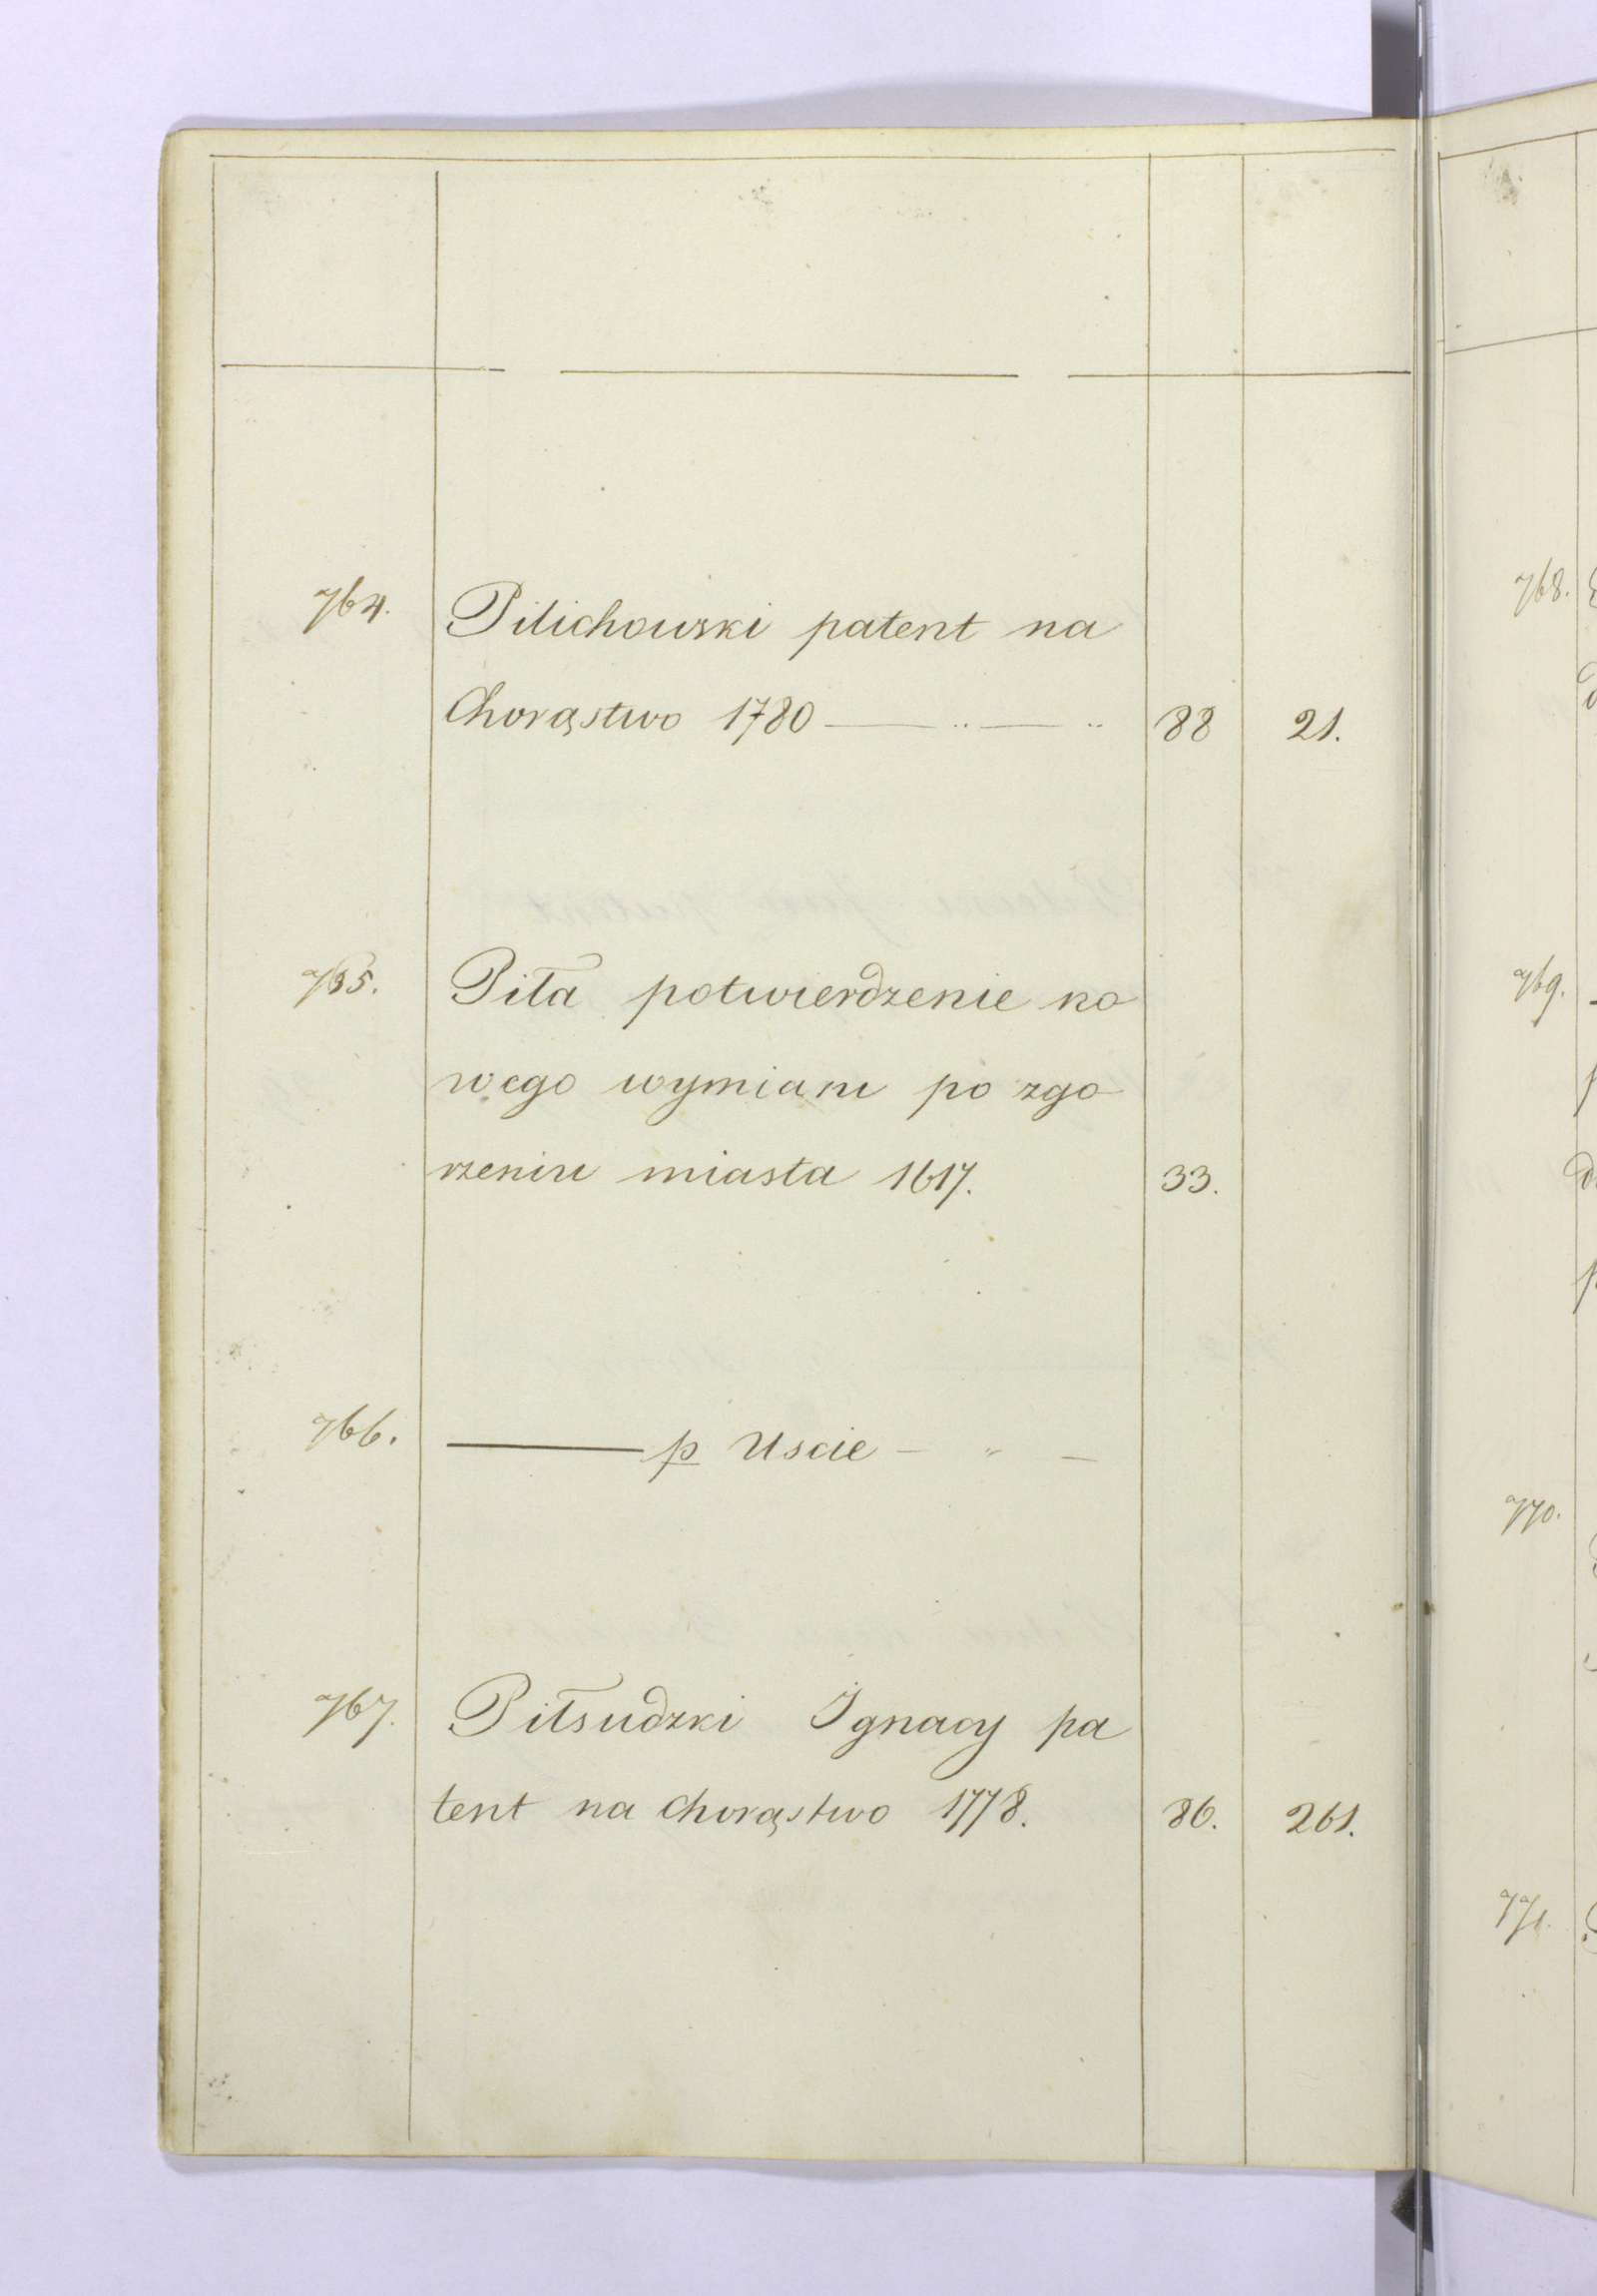 764. Pilichowski patent na
Chorąstwo 1780 — „ — „ 88 21.
765. Piła potwierdzenie no
wego wymiaru po zgo
rzeniu miasta 1617. 33.
766. — p Uscie — „ —
767. Piłsudzki Ignacy pa
tent na chorąstwo 1778. 86. 261.
768.
769.
770.
771.